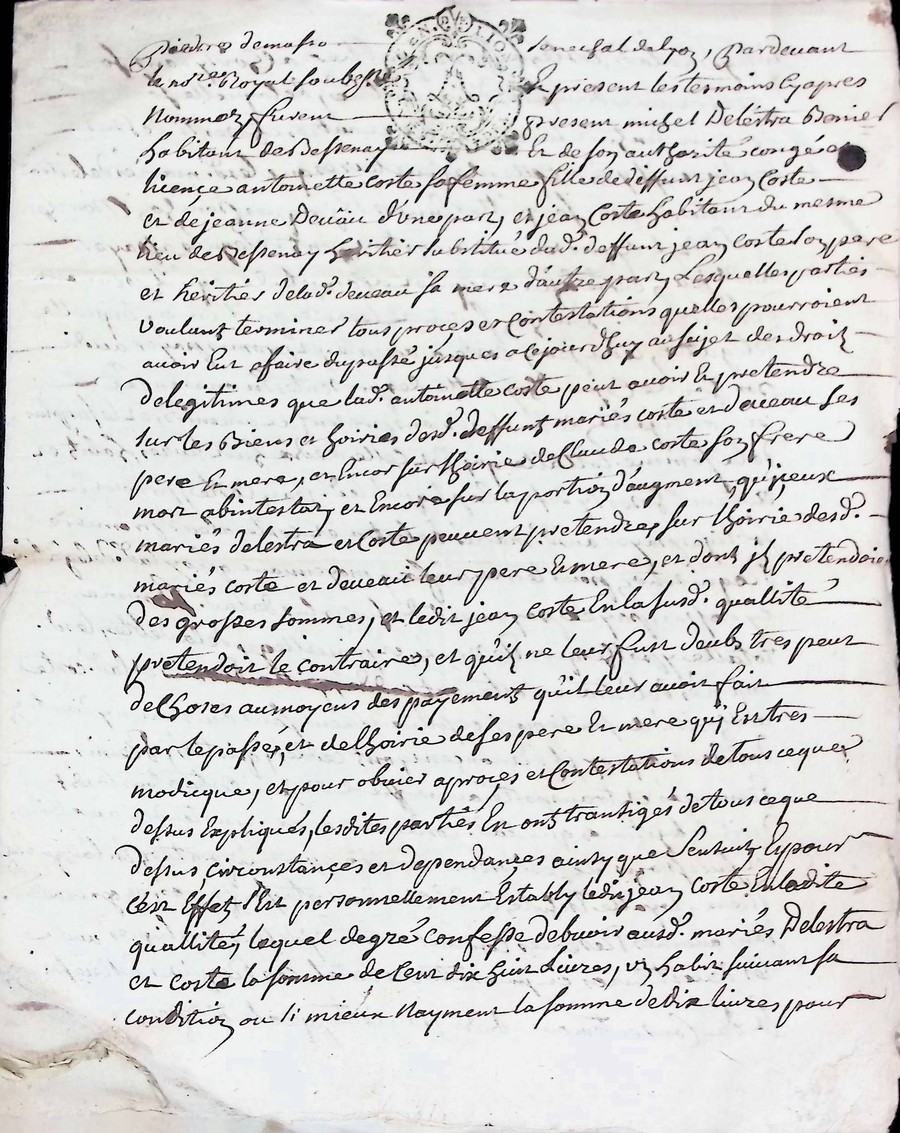 GEN. LION
Pierre demasso senechal de Lyon, Pardevant
le notre. Royal soubsne Et présent les tesmoins cy apres
Nommez furent present michel Delestra
habitant de Bessenay Et de son authorité congé et
licençe antoinette coste sa femme fille de deffunt jean Coste
et de jeanne Deveau d'une part, et jean Coste habitant du mesme
lieu de Bessenay heritier substitué dud. deffunt jean coste son pere
et heritier de lad. deveau sa mere d'autre part, Lesquelles parties
voulant terminer tous proces et Contestations quelles pourroient
avoir Eut a faire du passé jusques a ce jourdhuy au sujet des droit
de legitimes que lad. antoinette coste peut avoir Et pretendre
sur les Biens et hoiries desd. deffunt mariés coste et deveau ses
pere Et mere, et Encor sur lhoirie de Claude coste son frere
mort abintestat, et Encore sur la portion d'augment, qu'iceux
mariés delestra et Coste peuvent pretendre, sur lhoirie desd.
mariés coste et deveau leur pere Et mere, et dont jls pretendoie
des grosses sommes, et ledit jean coste En la susd. quallité
pretendoit le contraire, et qu'il ne leur fust deubs tres peut
de Choses au moyens des payement qu'il leur avoit fait
par le passé, et de lhoirie de ses pere Et mere qui Est tres
modicque, et pour obvier a proçes et Contestations de tous ceque
dessus Expliqués, lesdites partiês En ont transigés de tous ceque
dessus, Circonstançes et dependançes ainsy que Sensuit, Et pour
Cest Effet s'Est personnellement Estably ledit jean coste En ladite
quallité, lequel de gré confesse debvoir ausd. mariés Delestra
et Coste la somme de Cent dix huit Livres, un habit suivant sa
condition ou si mieux Nayment la somme de Dix livres pour